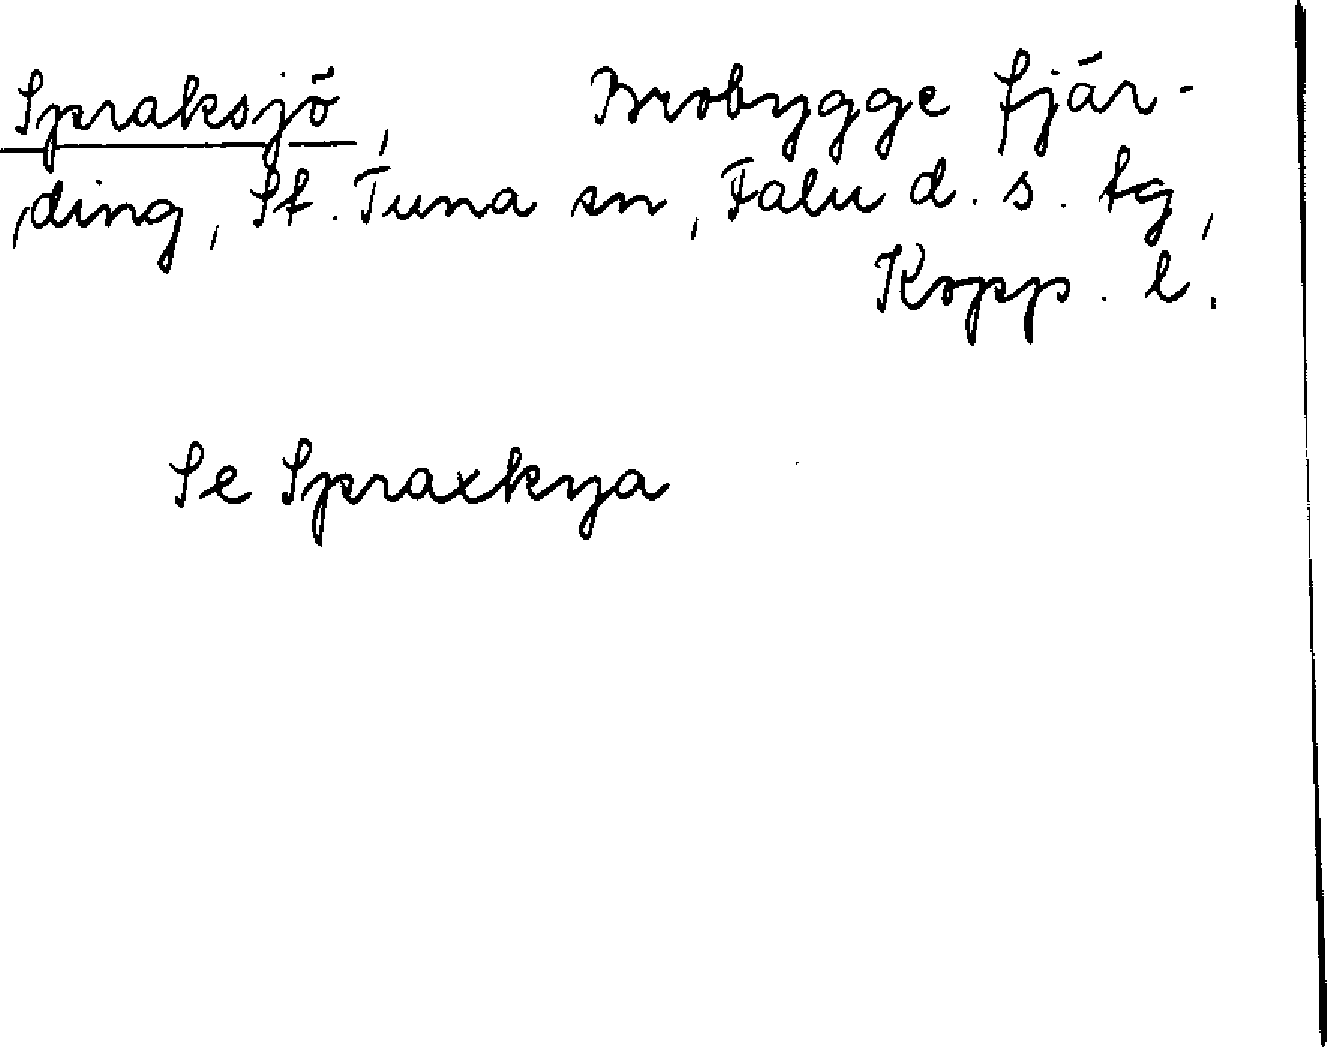 Spraksjö, Brobygge fjär-
ding, St. Tuna sn, Falu d. s. tg,
Kopp. l.
Se Spraxkya